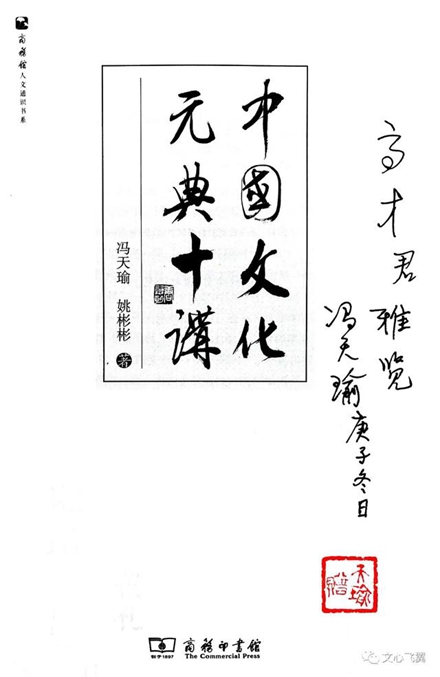 商務館人文通识书系
中國文化
元典十講
冯天瑜 姚彬彬 著
高才君雅览
冯天瑜庚子冬日
天瑜
商務印書館
创于1897
The Commercial Press
文心飞翼